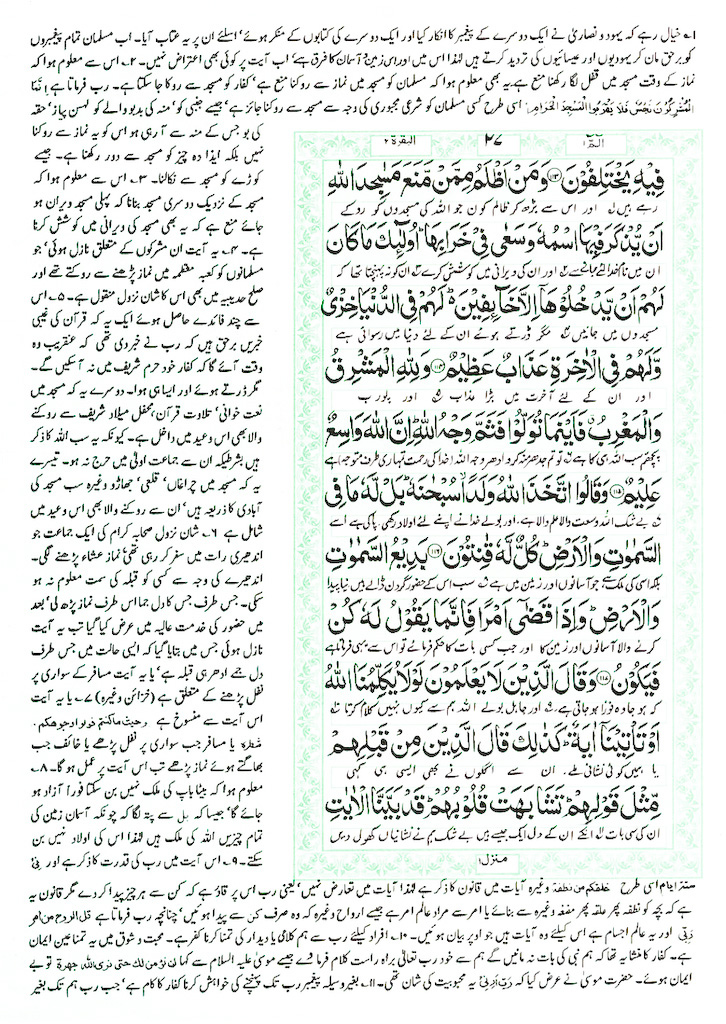 ۱۔ خیال رہے کہ یہود و نصاریٰ نے ایک دوسرے کے پیغمبر کا انکار کیا اور ایک دوسرے کی کتابوں کے منکر ہوئے' اسلئے ان پر یہ عتاب آیا۔ اب مسلمان تمام پیغمبروں
کو برحق مان کر یہودیوں اور عیسائیوں کی تردید کرتے ہیں لہٰذا اس میں اور اس میں زمین و آسمان کا فرق ہے' اب آیت پر کوئی بھی اعتراض نہیں۔ ۲۔ اس سے معلوم ہوا کہ
نماز کے وقت مسجد میں قفل لگا رکھنا منع ہے۔ یہ بھی معلوم ہوا کہ مسلمان کو مسجد میں نماز سے روکنا منع ہے' کفار کو مسجد سے روکا جا سکتا ہے۔ رب فرماتا ہے اِنَّمَا
الْمُشْرِكُوْنَ نَجَسٌ فَلَا يَقْرَبُوا الْمَسْجِدَ الْحَرَامَ اسی طرح کسی مسلمان کو شرعی مجبوری کی وجہ سے مسجد سے روکنا جائز ہے' جیسے جنبی کو' منہ کی بدبو والے کو لہسن پیاز' حقہ
کی بو جس کے منہ سے آ رہی ہو اس کو یہ نماز سے روکنا
نہیں بلکہ ایذا دہ چیز کو مسجد سے دور رکھنا ہے۔ جیسے
کوڑے کو مسجد سے نکالنا۔ ۳۔ اس سے معلوم ہوا کہ
مسجد کے نزدیک دوسری مسجد بنانا کہ پہلی مسجد ویران ہو
جائے منع ہے کہ یہ بھی مسجد کی ویرانی میں کوشش کرنا
ہے۔ ۴۔ یہ آیت ان مشرکوں کے متعلق نازل ہوئی' جو
مسلمانوں کو کعبہ معظمہ میں نماز پڑھنے سے روکتے تھے اور
صلح حدیبیہ میں بھی اس کا شان نزول منقول ہے۔ ۵۔ اس
سے چند فائدے حاصل ہوئے ایک یہ کہ قرآن کی غیبی
خبریں برحق ہیں کہ رب نے خبر دی تھی کہ عنقریب وہ
وقت آئے گا کہ کفار خود حرم شریف میں نہ آ سکیں گے۔
مگر ڈرتے ہوئے اور ایسا ہی ہوا۔ دوسرے یہ کہ مسجد میں
نعت خوانی' تلاوت قرآن، محفل میلاد شریف سے روکنے
والا بھی اس وعید میں داخل ہے۔ کیونکہ یہ سب اللہ کا ذکر
ہیں بشرطیکہ ان سے جماعت اولیٰ میں حرج نہ ہو۔ تیسرے
یہ کہ مسجد میں چراغاں' قلعی' جھاڑو وغیرہ سب مسجد کی
آبادی کا ذریعہ ہیں' ان سے روکنے والا بھی اس وعید میں
شامل ہے ۶۔ شان نزول صحابہ کرام کی ایک جماعت جو
اندھیری رات میں سفر کر رہی تھی' نماز عشاء پڑھنے لگی۔
اندھیرے کی وجہ سے کسی کو قبلہ کی سمت معلوم نہ ہو
سکی۔ جس طرف جس کا دل جما اس طرف نماز پڑھ لی' بعد
میں حضور کی خدمت عالیہ میں عرض کیا گیا تب یہ آیت
نازل ہوئی جس میں بتایا گیا کہ ایسی حالت میں جس طرف
دل جمے ادھر ہی قبلہ ہے' یا یہ آیت مسافر کے سواری پر
نفل پڑھنے کے متعلق ہے (خزائن وغیرہ) ۷۔ یا یہ آیت
اس آیت سے منسوخ ہے وحیث ماکنتم فولوا وجوھکم
شطرہ یا مسافر جب سواری پر نفل پڑھے یا خائف جب
بھاگتے ہوئے نماز پڑھے تب اس آیت پر عمل ہو گا۔ ۸۔
معلوم ہوا کہ بیٹا باپ کی ملک نہیں بن سکتا فوراً آزاد ہو
جائے گا' جیسا کہ بل سے پتہ لگا کہ چونکہ آسمان زمین کی
تمام چیزیں اللہ کی ملک ہیں لہٰذا اس کی اولاد نہیں بن
سکتے۔ ۹۔ اس آیت میں رب کی قدرت کا ذکر ہے اور فی
الٓمّٓ ۱ ۲۷ البقرۃ ۲
فِيْهِ يَخْتَلِفُوْنَ ﴿۱۱۳﴾ وَمَنْ اَظْلَمُ مِمَّنْ مَّنَعَ مَسٰجِدَ اللّٰهِ
رہے ہیں اور اس سے بڑھ کر ظالم کون جو اللہ کی مسجدوں کو روکے
اَنْ يُّذْكَرَ فِيْهَا اسْمُهٗ وَسَعٰى فِيْ خَرَابِهَا اُولٰٓئِكَ مَا كَانَ
ان میں نام خدا لئے جانے سے اور ان کی ویرانی میں کوشش کرے ان کو نہ پہنچتا تھا کہ
لَهُمْ اَنْ يَّدْخُلُوْهَآ اِلَّا خَآئِفِيْنَ لَهُمْ فِي الدُّنْيَا خِزْيٌ
مسجدوں میں جائیں مگر ڈرتے ہوئے ان کے لئے دنیا میں رسوائی ہے
وَّلَهُمْ فِي الْاٰخِرَةِ عَذَابٌ عَظِيْمٌ ﴿۱۱۴﴾ وَلِلّٰهِ الْمَشْرِقُ
اور ان کے لئے آخرت میں بڑا عذاب اور پورب
وَالْمَغْرِبُ فَاَيْنَمَا تُوَلُّوْا فَثَمَّ وَجْهُ اللّٰهِ اِنَّ اللّٰهَ وَاسِعٌ
پچھم سب اللہ ہی کا ہے تو تم جدھر منہ کرو ادھر وجہ اللہ (خدا کی رحمت تمہاری طرف متوجہ) ہے
عَلِيْمٌ ﴿۱۱۵﴾ وَقَالُوا اتَّخَذَ اللّٰهُ وَلَدًا سُبْحٰنَهٗ بَلْ لَّهٗ مَا فِي
بے شک اللہ وسعت والا علم والا ہے، اور بولے خدا نے اپنے لئے اولاد رکھی، پاکی ہے اسے
السَّمٰوٰتِ وَالْاَرْضِ كُلٌّ لَّهٗ قٰنِتُوْنَ ﴿۱۱۶﴾ بَدِيْعُ السَّمٰوٰتِ
بلکہ اسی کی ملک ہے جو آسمانوں اور زمین میں ہے سب اس کے حضور گردن ڈالے ہیں نیا پیدا
وَالْاَرْضِ وَاِذَا قَضٰٓى اَمْرًا فَاِنَّمَا يَقُوْلُ لَهٗ كُنْ
کرنے والا آسمانوں اور زمین کا اور جب کسی بات کا حکم فرمائے تو اس سے یہی فرماتا ہے
فَيَكُوْنُ وَقَالَ الَّذِيْنَ لَا يَعْلَمُوْنَ لَوْلَا يُكَلِّمُنَا اللّٰهُ
کہ ہو جا وہ فوراً ہو جاتی ہے، اور جاہل بولے اللہ ہم سے کیوں نہیں کلام کرتا
اَوْ تَاْتِيْنَآ اٰيَةٌ كَذٰلِكَ قَالَ الَّذِيْنَ مِنْ قَبْلِهِمْ
یا ہمیں کوئی نشانی ملے، ان سے اگلوں نے بھی ایسی ہی کہی
مِّثْلَ قَوْلِهِمْ تَشَابَهَتْ قُلُوْبُهُمْ قَدْ بَيَّنَّا الْاٰيٰتِ
ان کی سی بات انکے ان کے دل ایک جیسے ہیں بے شک ہم نے نشانیاں کھول دیں
منزل ۱
ستۃ ایام اسی طرح خلقکم من نطفۃ وغیرہ آیات میں قانون کا ذکر ہے لہٰذا آیات میں تعارض نہیں' یعنی رب اس پر قادر ہے کہ کن سے ہر چیز پیدا کر دے مگر قانون یہ
ہے کہ بچہ کو نطفہ پھر علقہ پھر مضغہ وغیرہ سے بنائے یا امر سے مراد عالم امر ہے جیسے ارواح وغیرہ کہ وہ صرف کن سے پیدا ہوئیں' چنانچہ رب فرماتا ہے قل الروح من امر
ربی اور یہ عالم اجسام ہے اس کے لئے وہ آیات ہیں جو اوپر بیان ہوئیں۔ ۱۰۔ افراد کیلئے رب سے ہم کلامی یا دیدار کی تمنا کرنا کفر ہے۔ محبت و شوق میں یہ تمنا عین ایمان
ہے۔ کفار کا منشا یہ تھا کہ ہم نبی کی بات نہ مانیں گے ہم سے خود رب تعالیٰ براہ راست کلام فرماوے جیسے موسیٰ علیہ السلام سے کہا لن نؤمن لک حتی نری اللہ جھرۃ تو بے
ایمان ہوئے۔ حضرت موسیٰ نے عرض کیا کہ رَبِّ اَرِنِيْ یہ محبوبیت کی شان تھی۔ ۱۱۔ بغیر وسیلہ پیغمبر رب تک پہنچنے کی خواہش کرنا کفار کا کام ہے' جب رب ہم تک بغیر